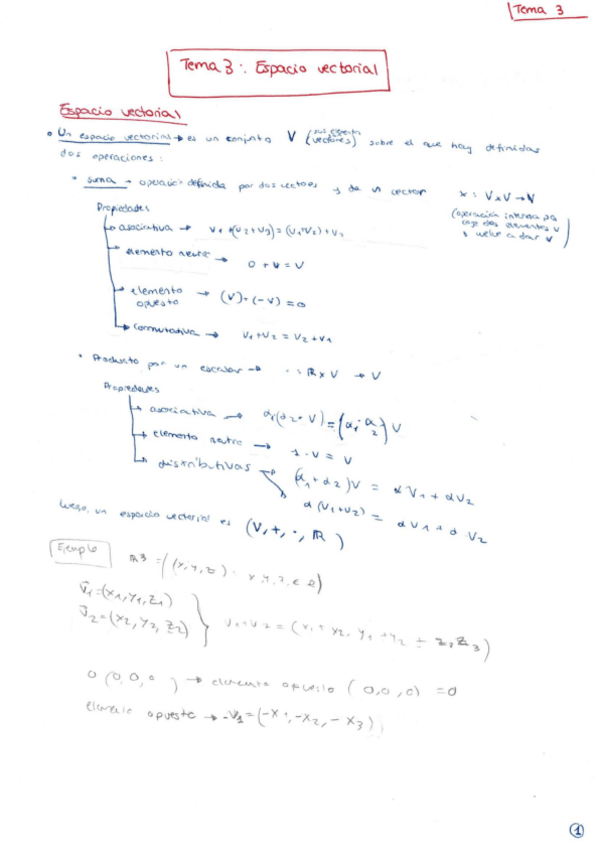 Tema 3
Tema 3: Espacio vectorial
Espacio vectorial
Un espacio vectorial → es un conjunto V (sus elementos vectores) sobre el que hay definidas
dos operaciones:
suma → operación definida por dos vectores y da un vector + : V x V → V
(operación interna
coge dos elementos V
y vuelve a dar V)
Propiedades
asociativa → V1 + (V2 + V3) = (V1 + V2) + V3
elemento neutro → 0 + V = V
elemento opuesto → (V) + (-V) = 0
conmutativa → V1 + V2 = V2 + V1
Producto por un escalar → · : ℝ x V → V
Propiedades
asociativa → α1(α2 · V) = (α1 · α2) V
elemento neutro → 1 · V = V
distributivas → (α1 + α2) V = αV1 + αV2
α (V1 + V2) = αV1 + α · V2
luego, un espacio vectorial es (V, +, ·, ℝ)
Ejemplo
ℝ3 = ((x, y, z) : x, y, z, ∈ ℝ)
v̄1 = (x1, y1, z1)
v̄2 = (x2, y2, z2)
V1 + V2 = (x1 + x2, y1 + y2 + z2 z3)
0 (0, 0, 0) → elemento opuesto (0, 0, 0) = 0
elemento opuesto → -V1 = (-x1, -x2, -x3)
1